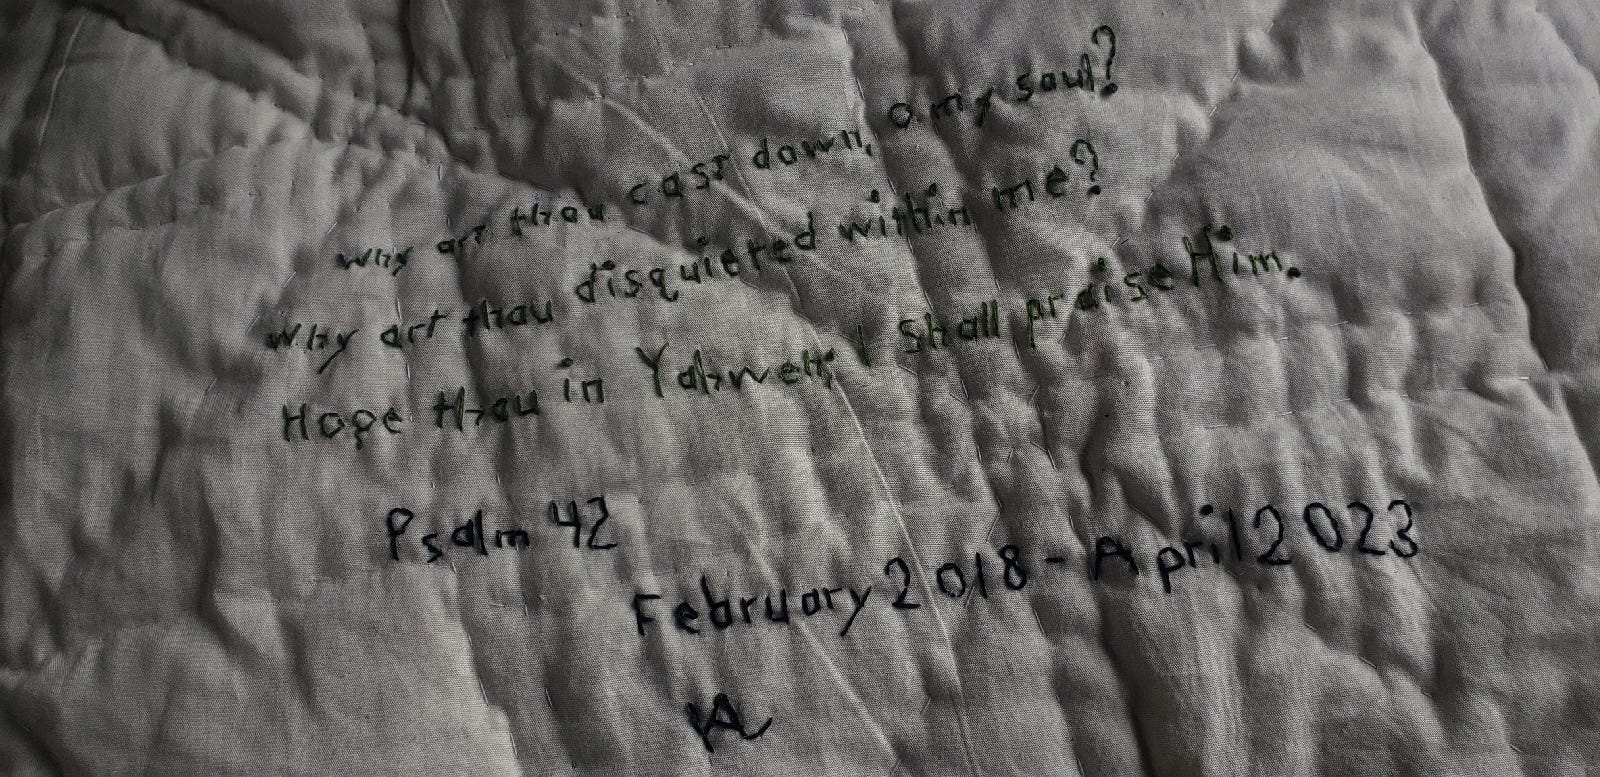 Why art thou cast down, o my soul?
Why art thou disquieted within me?
Hope thou in Yahweh; I shall praise Him.
Psalm 42
February 2018 - April 2023